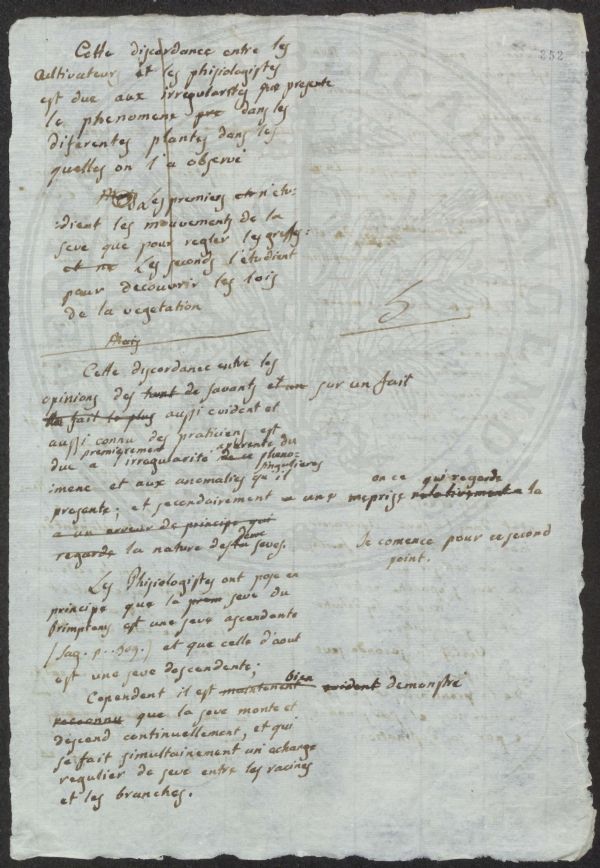 252
Cette discordance entre les
cultivateurs et les phisiologistes
est due aux irregularités que presente
le phenomene dans les
diferentes plantes dans les
quelles on l'a observé
Les premiers n'etu-
dient les mouvements de la
seve que pour regler les greffes:
et ne Les seconds l'etudient
pour decouvrir les lois
de la vegetation
Mais
Cette discordance entre les
opinions des de savants et un sur un fait
un fait le plus aussi evident et
aussi connu des praticiens est
premierement aparente du
due a l'irregularité de ce pheno-
singulieres
mene et aux anomalies qu'il
presente; et secondairement a une meprise relativement a la
en ce qui regarde
a un erreur de principe qui
regarde la nature des seves.
2eme
Je comence pour ce second
point.
Les Phisiologistes ont posé en
principe que la prem seve du
primptems est une seve ascendente
(Sag. p. 309.) et que celle d'aout
est une seve descendente;
bien
Cependent il est maintenent evident demonstré
reconnu que la seve monte et
descend continuellement, et qui
se fait simultainement un echange
regulier de seve entre les racines
et les branches.